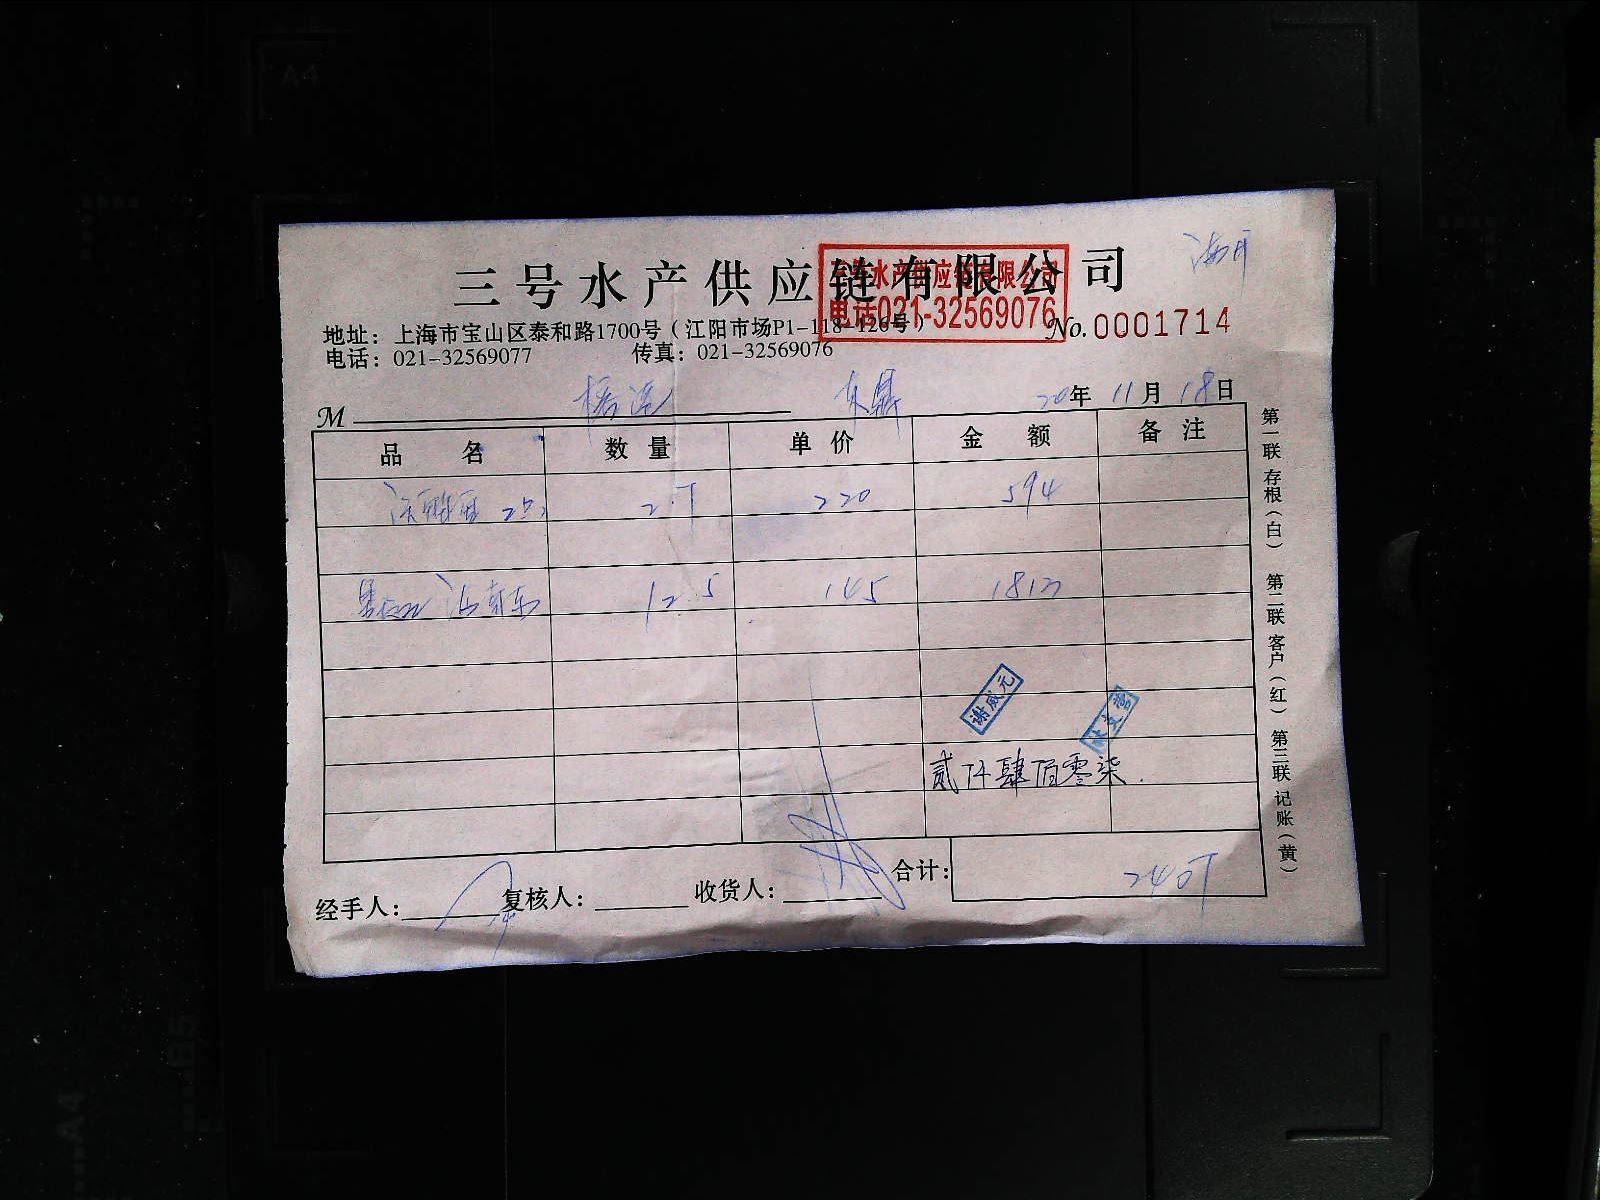 三号水产供应链有限公司
三号水产供应链有限公司
电话021-32569076
No.0001714
地址：上海市宝山区泰和路1700号（江阳市场P1-118-126号）
电话：021-32569077 传真：021-32569076
M
20年11月18日
品名 数量 单价 金额 备注
2.7 220 594
12.5 145 1813
谢成元
贰仟肆佰零柒.
合计： 2407
经手人： 复核人： 收货人：
第一联 存根（白） 第二联 客户（红） 第三联 记账（黄）